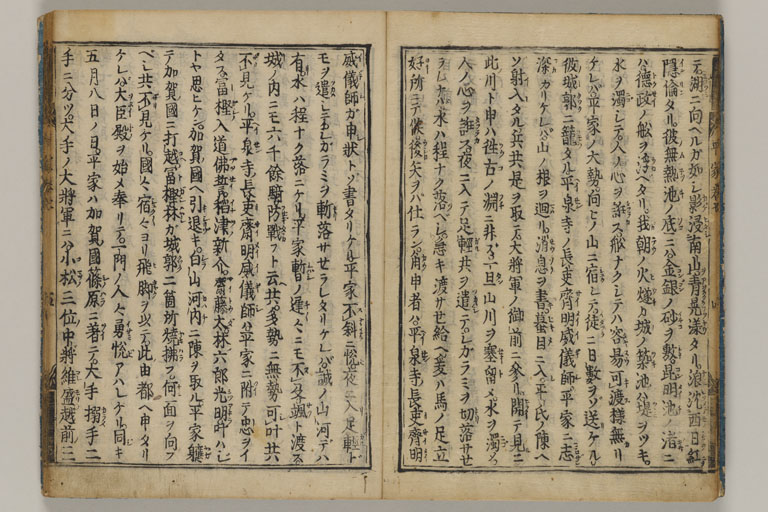 テ湖ニ向ヘルカ如シ影浸南山青晃漾タリ浪沈西日紅
隠倫タリ彼無熱池ノ底ニハ金銀ノ砂ヲ敷昆明池ノ渚ニ
ハ徳政ノ舩ヲ浮ヘタリ我朝ノ火燧カ城ノ築池ハ堤ヲツキ
水ヲ濁シテ人ノ心ヲ誑ス縦ナクシテハ容易可渡様無リ
ケレハ平家ノ大勢向ヒノ山ニ宿シテ徒ニ日數ヲソ送ケル
彼城郭ニ籠タル平泉寺ノ長吏齊明威儀師平家ニ志
深カリケレハ山ノ根ヲ廻リ消息ヲ書蟇目ニ入平氏ノ陳ヘ
ソ射入タル兵共是ヲ取テ大將軍ノ御前ニ參リ開テ見ニ
此川ト申ハ往古ノ淵ニ非ス一旦山川ヲ塞留メ水ヲ濁シ
人ノ心ヲ誑ス夜ニ入テ足輕共ヲ遣テシカラミヲ切落サセ
ラレナハ水ハ程ナク落ヘシ急キ渡サセ給ヘ爰ハ馬ノ足立
好所ニテ候後矢ヲハ仕ラン角申者ハ平泉寺長吏齊明
威儀師カ申狀トソ書タリケル平家不斜ニ悦夜ニ入足輕ト
モヲ遣シシカラミヲ斬落サセラレタリケレハ誠ノ山河テハ
有水ハ程ナク落ニケリ平家暫ノ遲々ニモ不及颯ト渡ス
城ノ内ニモ六千餘騎防戰フト云共多勢ニ無勢可叶共
不見ケリ平泉寺長吏齊明威儀師ハ平家ニ附テ忠ヲイ
タス富樫入道佛誓稻津新介齋藤太林六郎光明叶ハシ
トヤ思ヒケン加賀國ヘ引退キ白山河内ニ陳ヲ取ル平家軈
テ加賀國ニ打越富樫林カ城郭二箇所燒拂フ何面ヲ向フ
ヘシ共不見ケリ國々宿々ヨリ飛脚ヲ以テ此由都ヘ申タリ
ケレハ大臣殿ヲ始メ奉リテ一門ノ人々勇悅アハレケリ同キ
五月八日ノ日平家ハ加賀國篠原ニ著テ大手搦手二
手ニ分ツ大手ノ大將軍ニハ小松三位中將維盛越前三